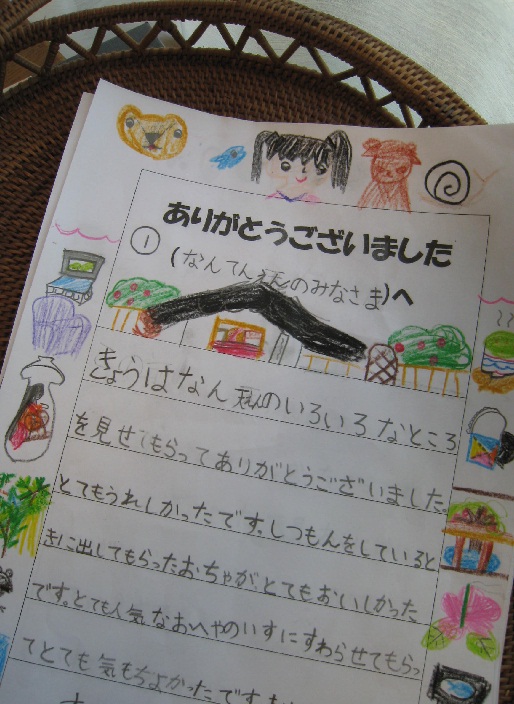 ありがとうございました
①
(なんてん苑のみなさま)へ
きょうはなん天苑のいろいろなところ
を見せてもらってありがとうございました。
とてもうれしかったです。しつもんをしていると
きに出してもらったおちゃがとてもおいしかった
です。とても人気なおへやのいすにすわらせてもらっ
てとても気もちよかったです。